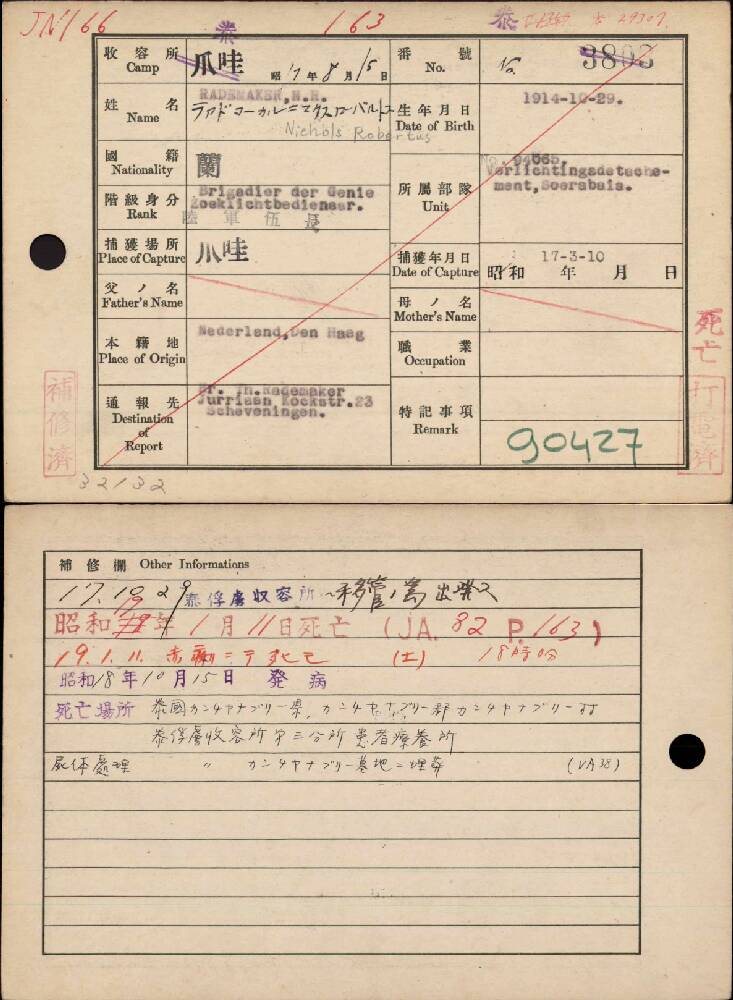 JN166
163
泰
泰
收容所 Camp
爪哇
昭17年8月15日
番號 No.
No. 3803
姓名 Name
RADEMAKER, N.R.
Nichols Robertus
生年月日 Date of Birth
1914-10-29.
國籍 Nationality
蘭
階級身分 Rank
Brigadier der Genie
Zoeklichtbedienaar.
陸軍伍長
所属部隊 Unit
No. 94065,
Verlichtingsdetache-
ment, Soerabaia.
捕獲場所 Place of Capture
爪哇
捕獲年月日 Date of Capture
17-3-10
昭和 年 月 日
父ノ名 Father's Name
母ノ名 Mother's Name
本籍地 Place of Origin
Nederland, Den Haag
職業 Occupation
通報先 Destination of Report
Hr. Th. Rademaker
Jurriaan Kockstr. 23
Scheveningen.
特記事項 Remark
90427
死亡
補修済
打電済
32132
補修欄 Other Informations
17.10.29 泰俘虜収容所へ移管ノ為出発ス
昭和19年1月11日死亡 (JA. 82 P. 163)
19.1.11. 赤痢ニテ死亡 (土) 18時0分
昭和18年10月15日 発病
死亡場所 泰國カンチヤナブリー県、カンチヤナブリー郡カンチヤナブリー村
泰俘虜收容所第三分所患者療養所
屍体處理 〃 カンチヤナブリー墓地ニ埋葬 (VA38)